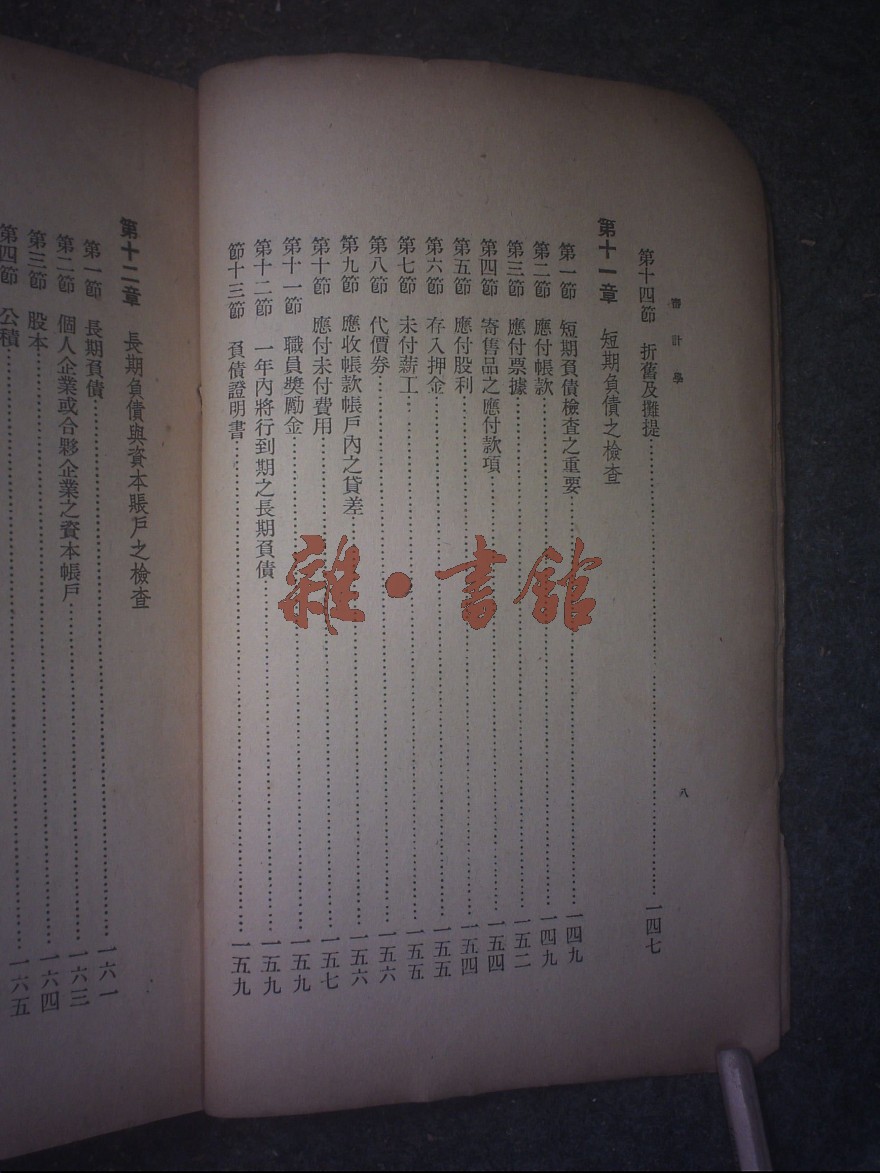 審計學
八
第十四節 折舊及攤提……一四七
第十一章 短期負債之檢查
第一節 短期負債檢查之重要……一四九
第二節 應付帳款……一四九
第三節 應付票據……一五二
第四節 寄售品之應付款項……一五四
第五節 應付股利……一五四
第六節 存入押金……一五五
第七節 未付薪工……一五五
第八節 代價券……一五六
第九節 應收帳款帳戶內之貸差……一五六
第十節 應付未付費用……一五七
第十一節 職員獎勵金……一五九
第十二節 一年內將行到期之長期負債……一五九
節十三節 負債證明書……一五九
第十二章 長期負債與資本賬戶之檢查
第一節 長期負債……一六一
第二節 個人企業或合夥企業之資本帳戶……一六三
第三節 股本……一六四
第四節 公積……一六五
雜·書館